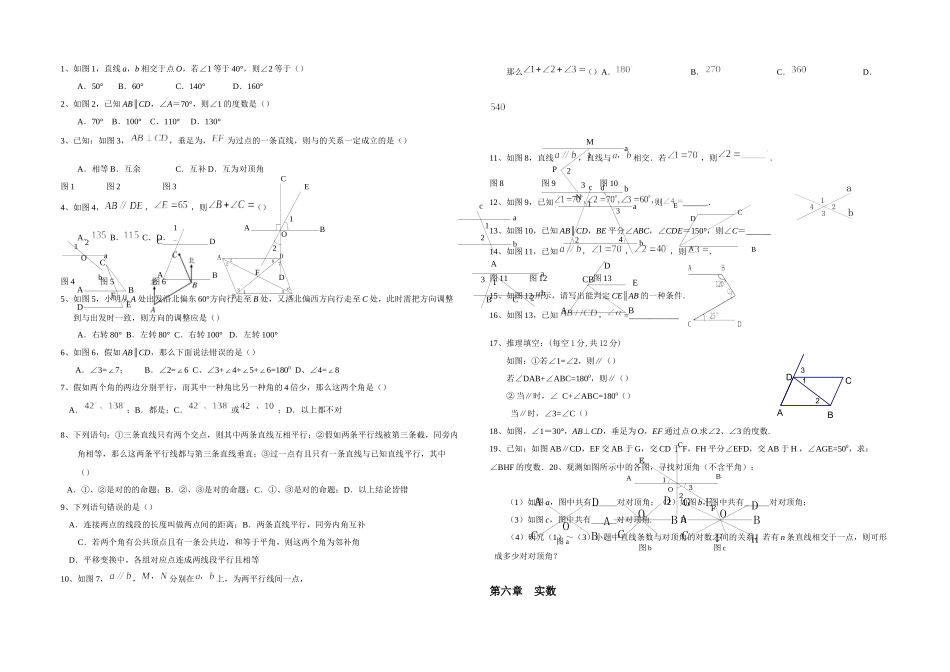 1、如图1，直线a，b相交于点O，若∠1等于40°，则∠2等于（）
A．50° B．60° C．140° D．160°
2、如图2，已知AB∥CD，∠A＝70°，则∠1的度数是（）
A．70° B．100° C．110° D．130°
3、已知：如图3，AB⊥CD，垂足为，EF为过点的一条直线，则与的关系一定成立的是（）
A．相等 B．互余 C．互补 D．互为对顶角
图1 图2 图3
4、如图4，AB∥DE，∠E=65，则∠B+∠C=（）
A．135 B．115 C． D．
图4 图5 图6
5、如图5，小明从A处出发沿北偏东60°方向行走至B处，又沿北偏西方向行走至C处，此时需把方向调整
到与出发时一致，则方向的调整应是（）
A．右转80° B．左转80° C．右转100° D．左转100°
6、如图6，假如AB∥CD，那么下面说法错误的是（）
A．∠3=∠7； B．∠2=∠6 C、∠3+∠4+∠5+∠6=180⁰ D、∠4=∠8
7、假如两个角的两边分别平行，而其中一种角比另一种角的4倍少，那么这两个角是（）
A．42°、138°；B．都是；C．42°、138°或42°、10；D．以上都不对
8、下列语句：①三条直线只有两个交点，则其中两条直线互相平行；②假如两条平行线被第三条截，同旁内
角相等，那么这两条平行线都与第三条直线垂直；③过一点有且只有一条直线与已知直线平行，其中
（）
A．①、②是对的的命题；B．②、③是对的命题；C．①、③是对的命题；D．以上结论皆错
9、下列语句错误的是（）
A．连接两点的线段的长度叫做两点间的距离；B．两条直线平行，同旁内角互补
C．若两个角有公共顶点且有一条公共边，和等于平角，则这两个角为邻补角
D．平移变换中，各组对应点连成两线段平行且相等
10、如图7，a∥b，M，N分别在a，b上，为两平行线间一点，
那么∠1+∠2+∠3=（）A．180 B．270 C．360 D．
540
11、如图8，直线a∥b，直线与a，b相交．若∠1=70，则∠2=．
图8 图9 图10
12、如图9，已知∠1=70°，∠2=70°，∠3=60°，则∠4=______．
13、如图10，已知AB∥CD，BE平分∠ABC，∠CDE＝150°，则∠C＝______
14、如图11，已知a∥b，∠1=70，∠2=40，则∠3=．
图11 图12 图13
15、如图12所示，请写出能判定CE∥AB的一种条件．
16、如图13，已知AB//CD，∠=____________
17、推理填空：(每空1分,共12分)
如图：①若∠1=∠2，则∥（）
若∠DAB+∠ABC=180⁰，则∥（）
②当∥时，∠ C+∠ABC=180⁰（）
当∥时，∠3=∠C（）
18、如图，∠1=30°，AB⊥CD，垂足为O，EF通过点O.求∠2、∠3的度数.
19、已知：如图AB∥CD，EF交AB于G，交CD于F，FH平分∠EFD，交AB于H，∠AGE=50⁰，求：
∠BHF的度数．20、观测如图所示中的各图，寻找对顶角（不含平角）：
（1）如图a，图中共有____对对顶角；（2）如图b，图中共有____对对顶角；
（3）如图c，图中共有____对对顶角．
（4）研究（1）～（3）小题中直线条数与对顶角的对数之间的关系，若有n条直线相交于一点，则可形
图a 图b 图c
成多少对对顶角？
第六章 实数